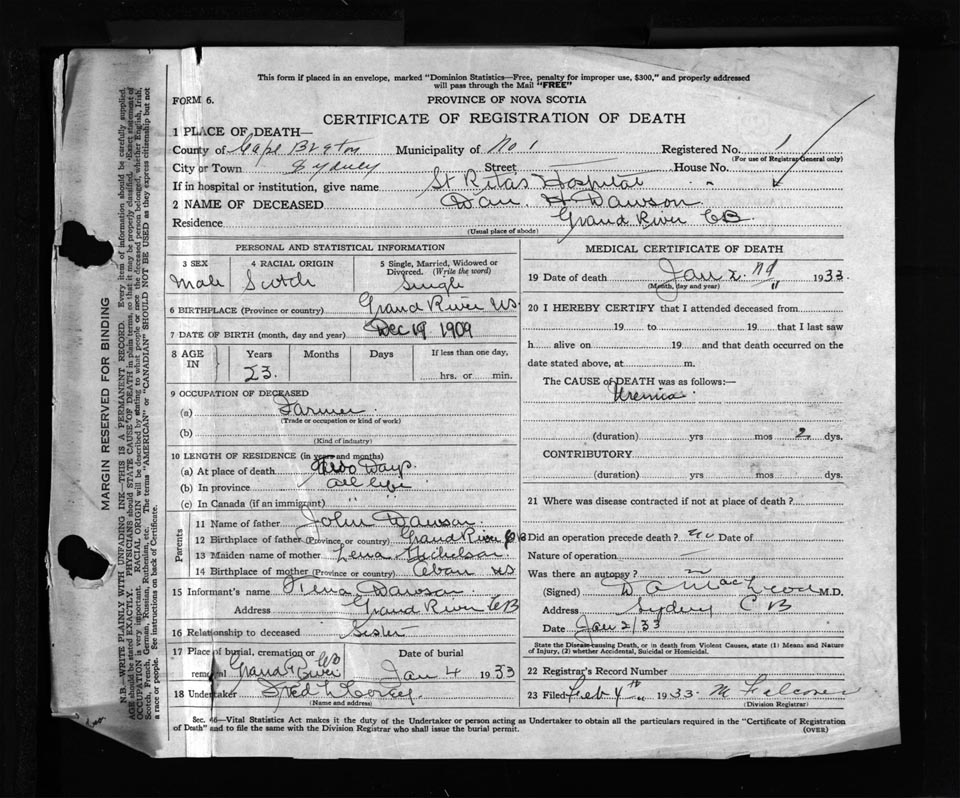 This form if placed in an envelope, marked "Dominion Statistics—Free, penalty for improper use, $300," and properly addressed
will pass through the Mail "FREE"
FORM 6.
PROVINCE OF NOVA SCOTIA
CERTIFICATE OF REGISTRATION OF DEATH
1 PLACE OF DEATH—
County of Cape Breton Municipality of No 1 Registered No. 1
(For use of Registrar General only)
City or Town Sydney Street House No.
If in hospital or institution, give name St Ritas Hospital
2 NAME OF DECEASED Dan. H Dawson
Residence Grand River CB.
(Usual place of abode)
PERSONAL AND STATISTICAL INFORMATION
3 SEX 4 RACIAL ORIGIN 5 Single, Married, Widowed or Divorced. (Write the word)
Male Scotch Single
6 BIRTHPLACE (Province or country) Grand River NS.
7 DATE OF BIRTH (month, day and year) Dec 19 1909
8 AGE IN Years Months Days If less than one day,
23. hrs. or min.
9 OCCUPATION OF DECEASED
(a) Farmer
(Trade or occupation or kind of work)
(b)
(Kind of industry)
10 LENGTH OF RESIDENCE (in years and months)
(a) At place of death Two Days.
(b) In province all life
(c) In Canada (if an immigrant) "
Parents
11 Name of father John Dawson.
12 Birthplace of father (Province or country) Grand River CB
13 Maiden name of mother Lena Nicholson
14 Birthplace of mother (Province or country) NS
15 Informant's name Tena Dawson.
Address Grand River CB
16 Relationship to deceased Sister
17 Place of burial, cremation or removal Grand River CB Date of burial Jan 4 1933
18 Undertaker
(Name and address)
MEDICAL CERTIFICATE OF DEATH
19 Date of death Jan 2 nd 1933.
(Month, day and year)
20 I HEREBY CERTIFY that I attended deceased from
19 to 19 that I last saw
h alive on 19 and that death occurred on the
date stated above, at m.
The CAUSE of DEATH was as follows:—
Uremia.
(duration) yrs mos 2 dys.
CONTRIBUTORY
(duration) yrs mos dys.
21 Where was disease contracted if not at place of death?
Did an operation precede death? no Date of
Nature of operation —
Was there an autopsy?
(Signed) D A MacLeod M.D.
Address Sydney C B
Date Jan 2/33
State the Disease causing Death, or in death from Violent Causes, state (1) Means and Nature
of Injury, (2) whether Accidental, Suicidal or Homicidal.
22 Registrar's Record Number
23 Filed Feb 4th 1933 M Falconer
(Division Registrar)
Sec. 46—Vital Statistics Act makes it the duty of the Undertaker or person acting as Undertaker to obtain all the particulars required in the "Certificate of Registration
of Death" and to file the same with the Division Registrar who shall issue the burial permit.
(OVER)
MARGIN RESERVED FOR BINDING
N.B.—WRITE PLAINLY WITH UNFADING INK—THIS IS A PERMANENT RECORD. Every item of information should be carefully supplied.
AGE should be stated EXACTLY. PHYSICIANS should STATE CAUSE OF DEATH in plain terms, so that it may be properly classified. Exact statement of
OCCUPATION is very important. RACIAL ORIGIN will be described by stating to what people or race the deceased person belonged, whether English, Irish,
Scotch, French, German, Russian, Ruthenian, etc. The terms "AMERICAN" or "CANADIAN" SHOULD NOT BE USED as they express citizenship but not
a race or people. See instructions on back of Certificate.